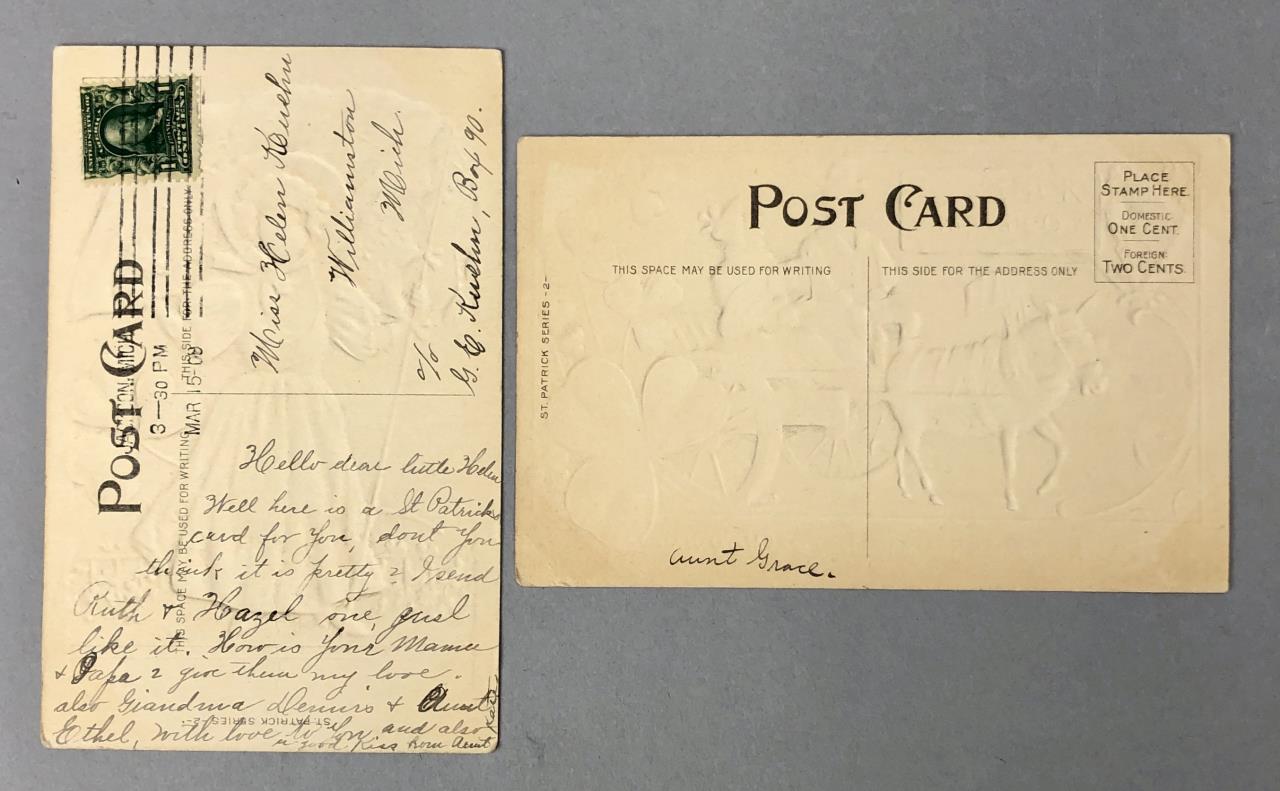 POST CARD
JACKSON, MICH.
3-30 PM
MAR 15-09
THIS SIDE FOR THE ADDRESS ONLY
THIS SPACE MAY BE USED FOR WRITING
Miss Helen Kuehn
Williamston
Mich.
c/o
G. E. Kuehn, Box 90.
Hello dear little Helen
Well here is a St Patricks
card for you, dont you
think it is pretty? I send
Ruth & Hazel one, just
like it. How is your Mama
& Papa? give them my love.
also Grandma & Aunt
Ethel, with love to you and also
a good kiss from Aunt
Kate
ST. PATRICK SERIES-2-
POST CARD
PLACE
STAMP HERE
DOMESTIC
ONE CENT.
FOREIGN:
TWO CENTS.
THIS SPACE MAY BE USED FOR WRITING
THIS SIDE FOR THE ADDRESS ONLY
ST. PATRICK SERIES-2-
Aunt Grace.